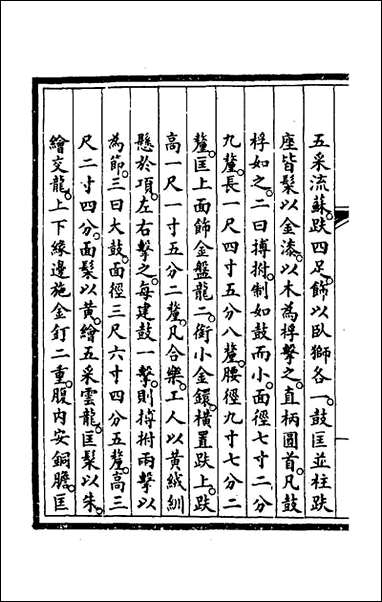 五采流蘇趺四足飾以臥獅各一鼓匡並柱趺
座皆髹以金漆以木為桴擊之直柄圓首凡鼓
桴如之二曰搏拊制如鼓而小面徑七寸二分
九釐長一尺四寸五分八釐腰徑九寸七分二
釐匡上面飾金盤龍二銜小金鐶橫置趺上趺
高一尺一寸五分二釐凡合樂工人以黃絨紃
懸於項左右擊之每建鼓一擊則搏拊兩擊以
為節三曰大鼓面徑三尺六寸四分五釐高三
尺二寸四分面髹以黃繪五采雲龍匡髹以朱
繪交龍上下緣邊施金釘二重腹內安銅膽匡